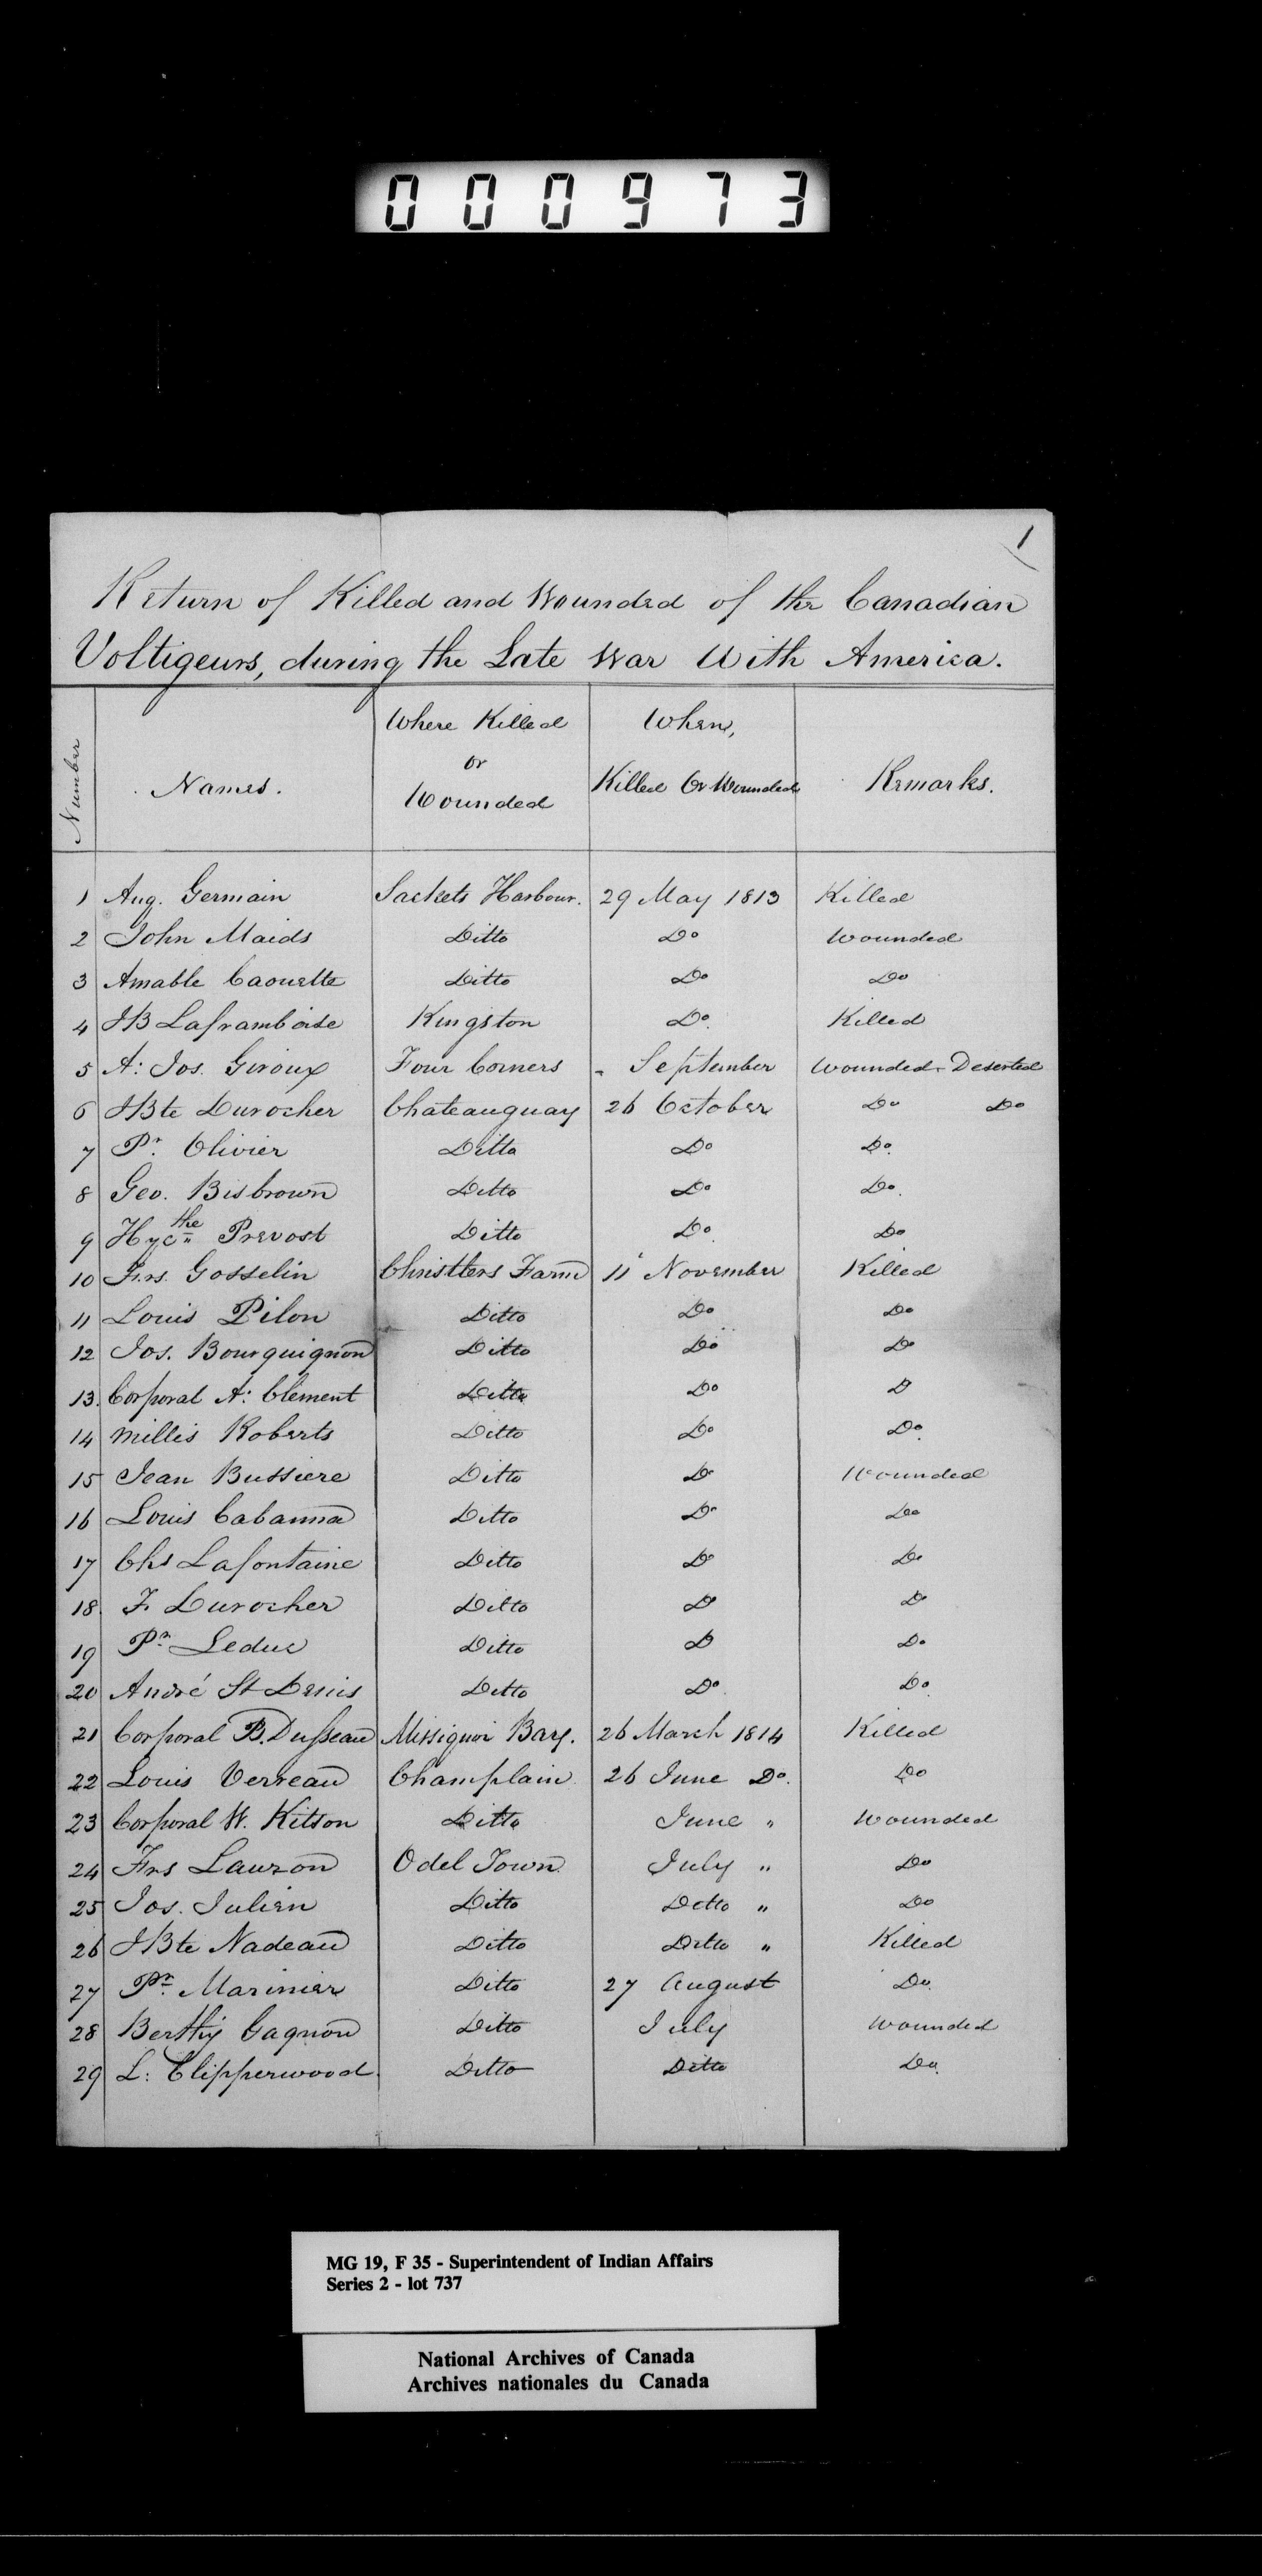 000973
1
Return of Killed and Wounded of the Canadian
Voltigeurs, during the Late War With America.
Number
Names.
Where Killed
or
Wounded
When,
Killed Or Wounded
Remarks.
1 Aug. Germain Sackets Harbour. 29 May 1813 Killed
2 John Maids Ditto Do Wounded
3 Amable Caouette Ditto Do Do
4 JB Laframboise Kingston Do. Killed
5 A: Jos. Giroux Four Corners - September Wounded - Deserted
6 JBte Durocher Chateauguay 26 October Do Do
7 Pr. Olivier Ditto Do Do.
8 Geo. Bisbrown Ditto Do Do.
9 Hycthe Prevost Ditto Do. Do
10 Frs. Gosselin Christlers Farm 11 November Killed
11 Louis Pilon Ditto Do Do
12 Jos. Bourguignon Ditto Do Do
13. Corporal A: Clement Ditto Do D
14 Millis Roberts Ditto Do Do.
15 Jean Bussiere Ditto Do Wounded
16 Louis Cabanna Ditto Do Do
17 Chs Lafontaine Ditto Do Do
18. F. Durocher Ditto Do Do
19 Pr. Leduc Ditto D Do
20 André St Denis Ditto Do. Do.
21 Corporal B. Dusseau Missiquoi Bay. 26 March 1814 Killed
22 Louis Verreau Champlain. 26 June Do. Do
23 Corporal W. Kitson Ditto June " Wounded
24 Frs Lauzon Odel Town. July " Do
25 Jos. Julien Ditto Ditto " Do
26 JBte Nadeau Ditto Ditto " Killed
27 Pr. Marinier Ditto 27 August Do.
28 Berthy Gagnon Ditto July Wounded
29 L: Clipperwood. Ditto Ditto Do.
MG 19, F 35 - Superintendent of Indian Affairs
Series 2 - lot 737
National Archives of Canada
Archives nationales du Canada